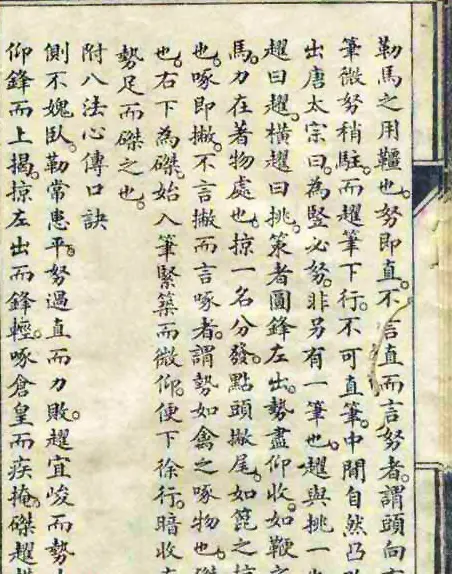 勒馬之用韁也。努即直。不言直而言努者。謂頭向
筆微努稍駐。而趯筆下行。不可直筆。中間自然凸
出唐太宗曰。為竪必努。非另有一筆也。趯與挑一
趯曰趯。橫趯曰挑。策者圓鋒左出。勢盡仰收。如鞭
馬。力在著物處也。掠一名分發。點頭撇尾。如箆之
也。啄即撇。不言撇而言啄者。謂勢如禽之啄物也。磔
也。右下為磔。始入筆緊築而微仰。便下徐行。暗收
勢足而磔之也。
附八法心傳口訣
側不媿臥。勒常患平。努過直而力敗。趯宜峻而勢
仰鋒而上揭。掠左出而鋒輕。啄倉皇而疾掩。磔趯